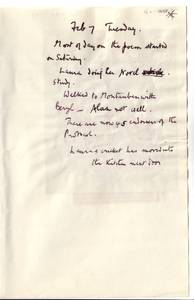 Feb 7 Tuesday.
Most of day on the poem started
on Saturday.
Laura doing her Nord
study.
Walked to Montauban with
Beryl — Alan not well.
There are now 45 endorsers of the
Protocol.
Laura's cricket has moved into
the kitchen next door